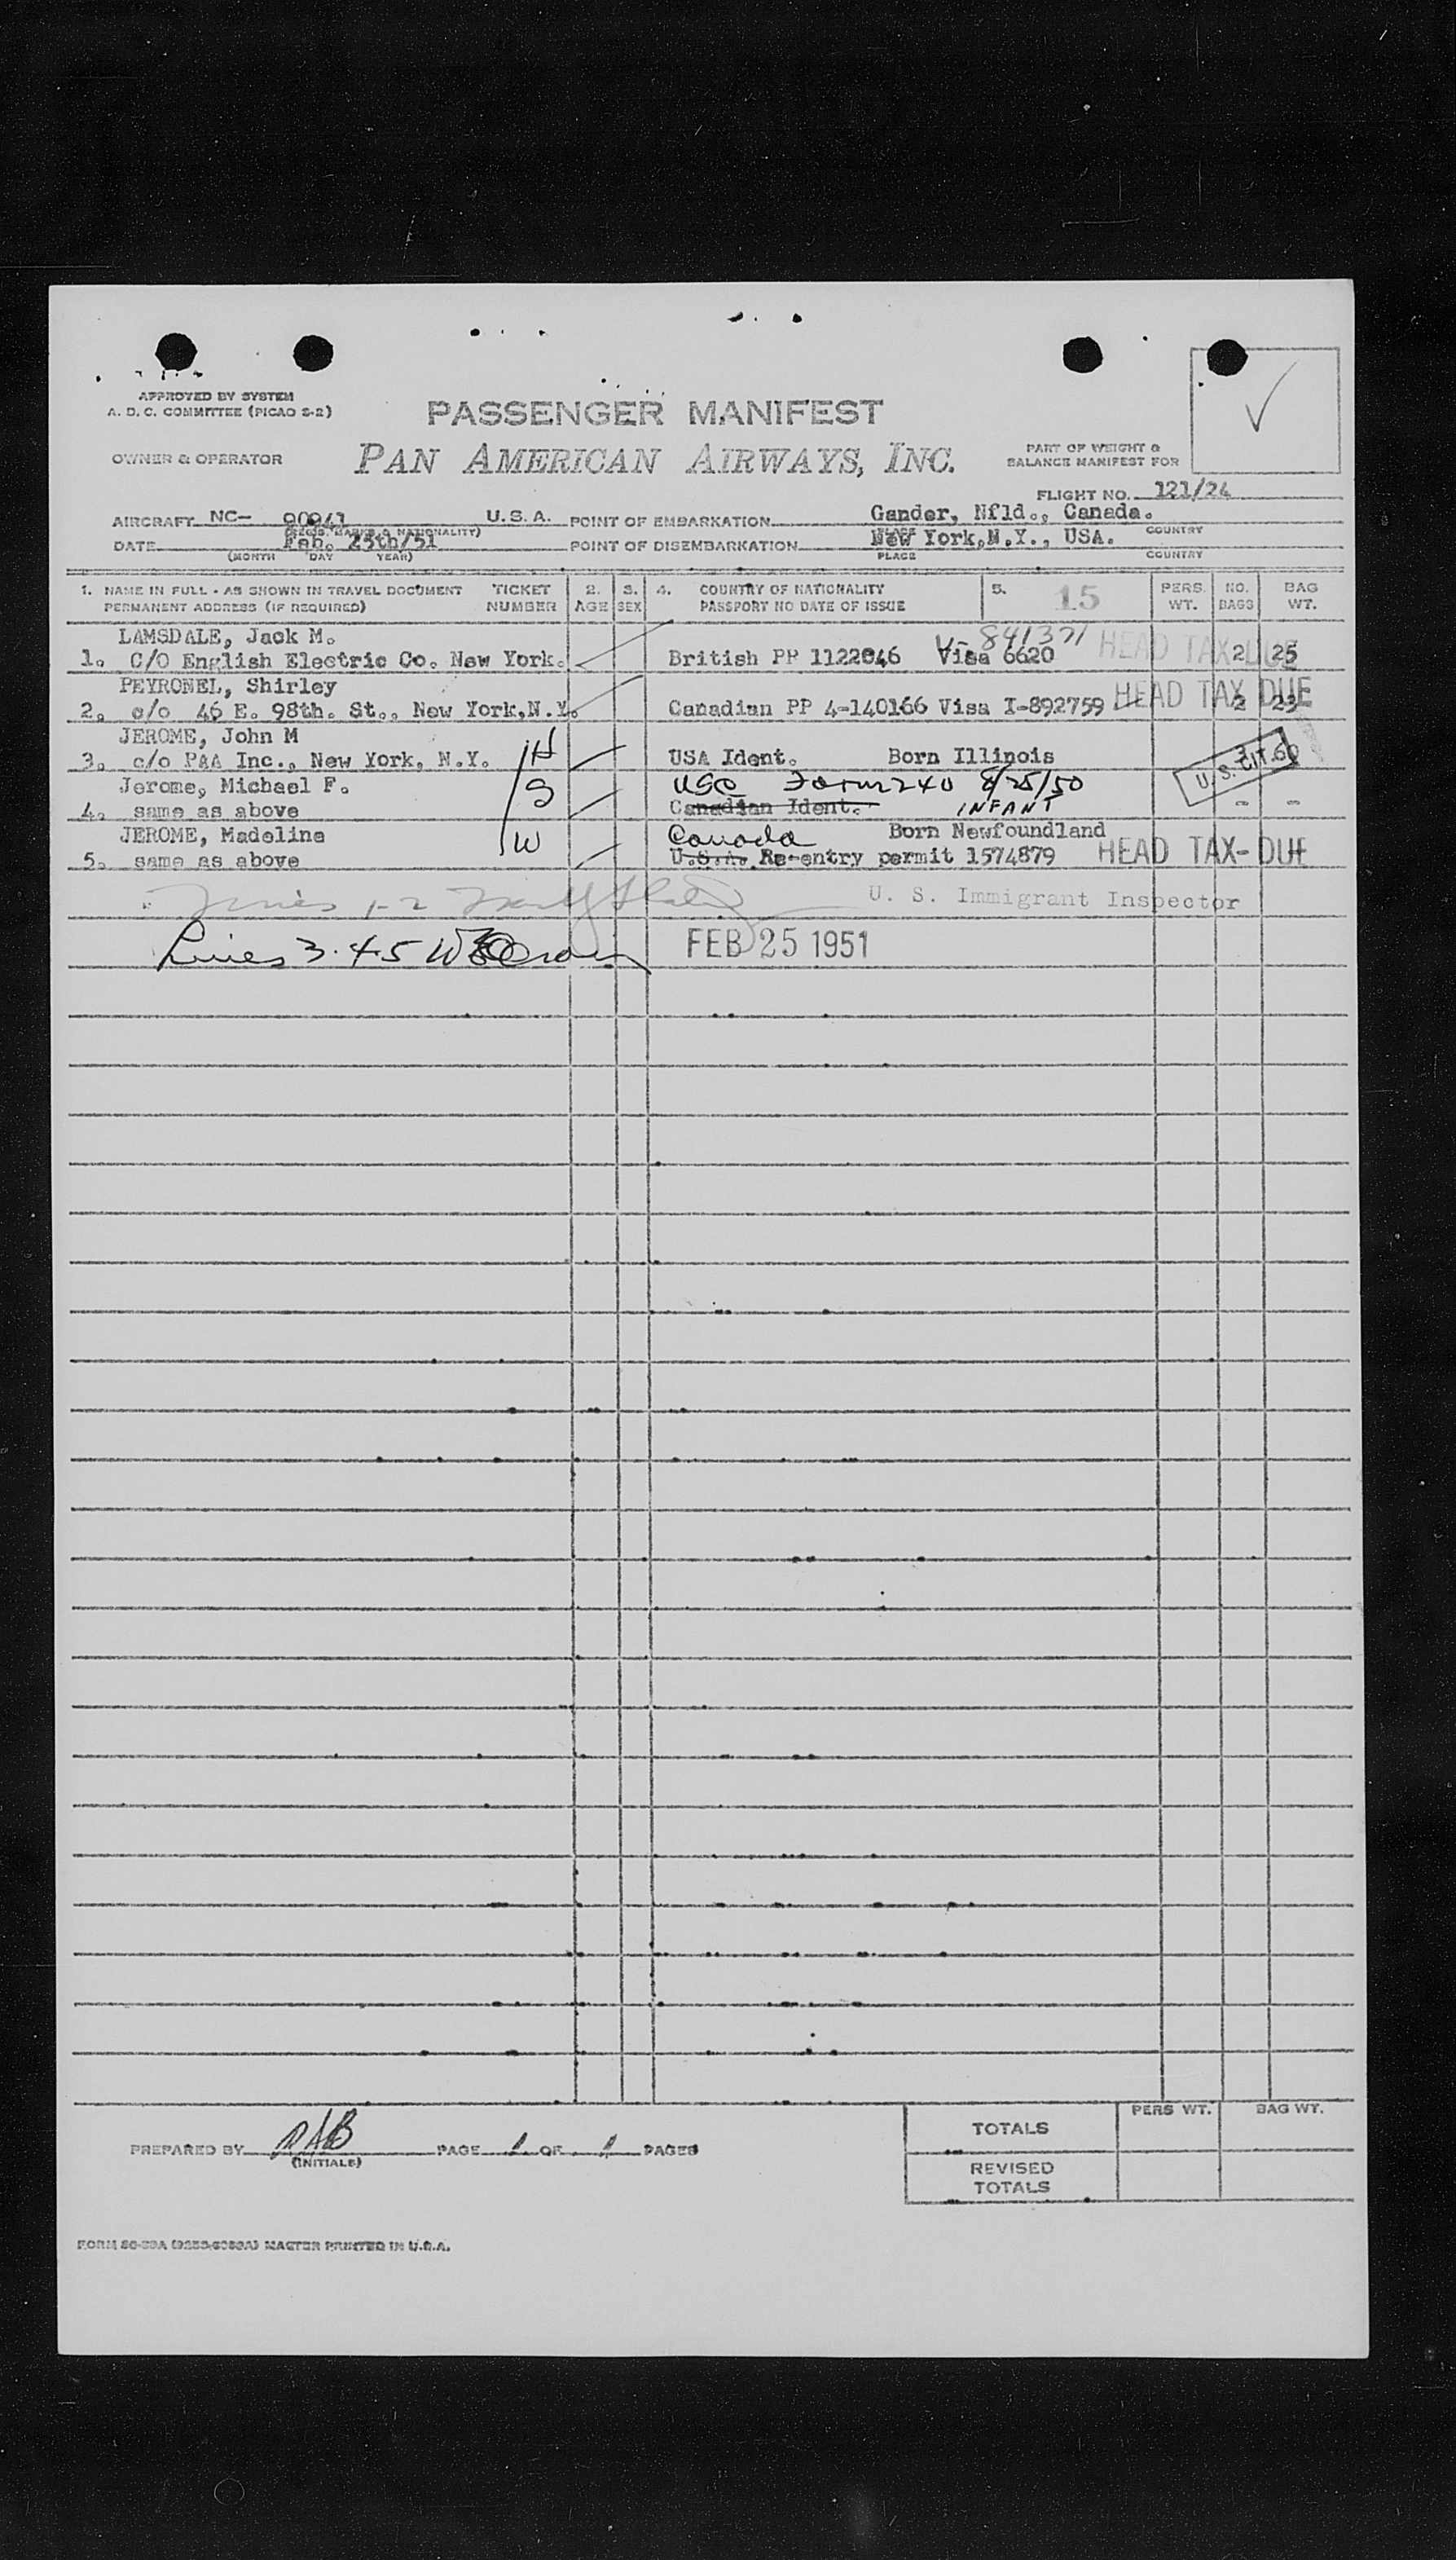 APPROVED BY SYSTEM
A. D. C. COMMITTEE (PICAO S-2)
PASSENGER MANIFEST
OWNER & OPERATOR
PAN AMERICAN AIRWAYS, INC.
PART OF WEIGHT &
BALANCE MANIFEST FOR
FLIGHT NO. 121/24
AIRCRAFT NC- 90941 U.S.A. POINT OF EMBARKATION Gander, Nfld., Canada.
(REGIS. MARKS & NATIONALITY) PLACE COUNTRY
DATE Feb. 25th/51 POINT OF DISEMBARKATION New York,N.Y., USA.
(MONTH DAY YEAR) PLACE COUNTRY
1. NAME IN FULL - AS SHOWN IN TRAVEL DOCUMENT TICKET 2. 3. 4. COUNTRY OF NATIONALITY 5. 15 PERS. NO. BAG
PERMANENT ADDRESS (IF REQUIRED) NUMBER AGE SEX PASSPORT NO DATE OF ISSUE WT. BAGS WT.
LAMSDALE, Jack M. V-841371 HEAD TAX DUE
1. C/O English Electric Co. New York. British PP 1122046 Visa 6620 2 25
PEYRONEL, Shirley HEAD TAX DUE
2. c/o 46 E. 98th. St., New York,N.Y. Canadian PP 4-140166 Visa I-892759 2 23
JEROME, John M H
3. c/o PAA Inc., New York, N.Y. USA Ident. Born Illinois U. S. CIT. 60
Jerome, Michael F. S USC Form 240 8/25/50
4. same as above Canadian Ident. INFANT - -
JEROME, Madeline W Canada Born Newfoundland
5. same as above U.S.A. Re-entry permit 1574879 HEAD TAX- DUE
Lines 1-2 U. S. Immigrant Inspector
Lines 3.4.5 FEB 25 1951
PREPARED BY RAB PAGE 1 OF 1 PAGES
(INITIALS)
PERS WT. BAG WT.
TOTALS
REVISED
TOTALS
MASTER PRINTED IN U.S.A.